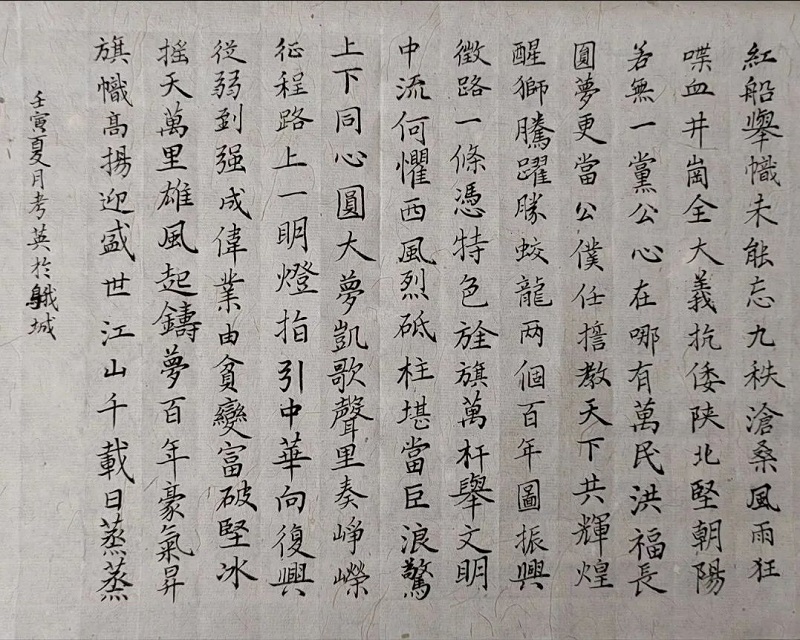 紅船舉幟未能忘九秩滄桑風雨狂
喋血井崗全大義抗倭陕北堅朝陽
若無一黨公心在哪有萬民洪福長
圓夢更當公僕任擔教天下共輝煌
醒獅騰躍勝蛟龍两個百年圖振興
徵路一條憑特色旌旗萬杆舉文明
中流何懼西風烈砥柱堪當巨浪驚
上下同心圓大夢凱歌聲里奏崢嶸
征程路上一明燈指引中華向復興
從弱到强成偉業由貧變富破堅冰
摇天萬里雄風起鑄夢百年豪氣昇
旗幟高揚迎盛世江山千載日蒸蒸
壬寅夏月考英於城